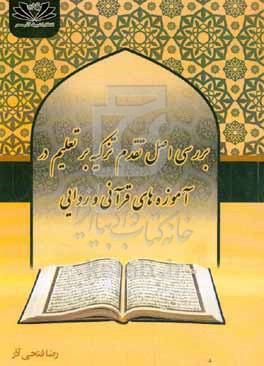 بررسی اصل تقدم تزکیه بر تعلیم در
آموزه های قرآنی و روایی
خانه کتاب و ادبیات ایران
رضا فتحی آذر